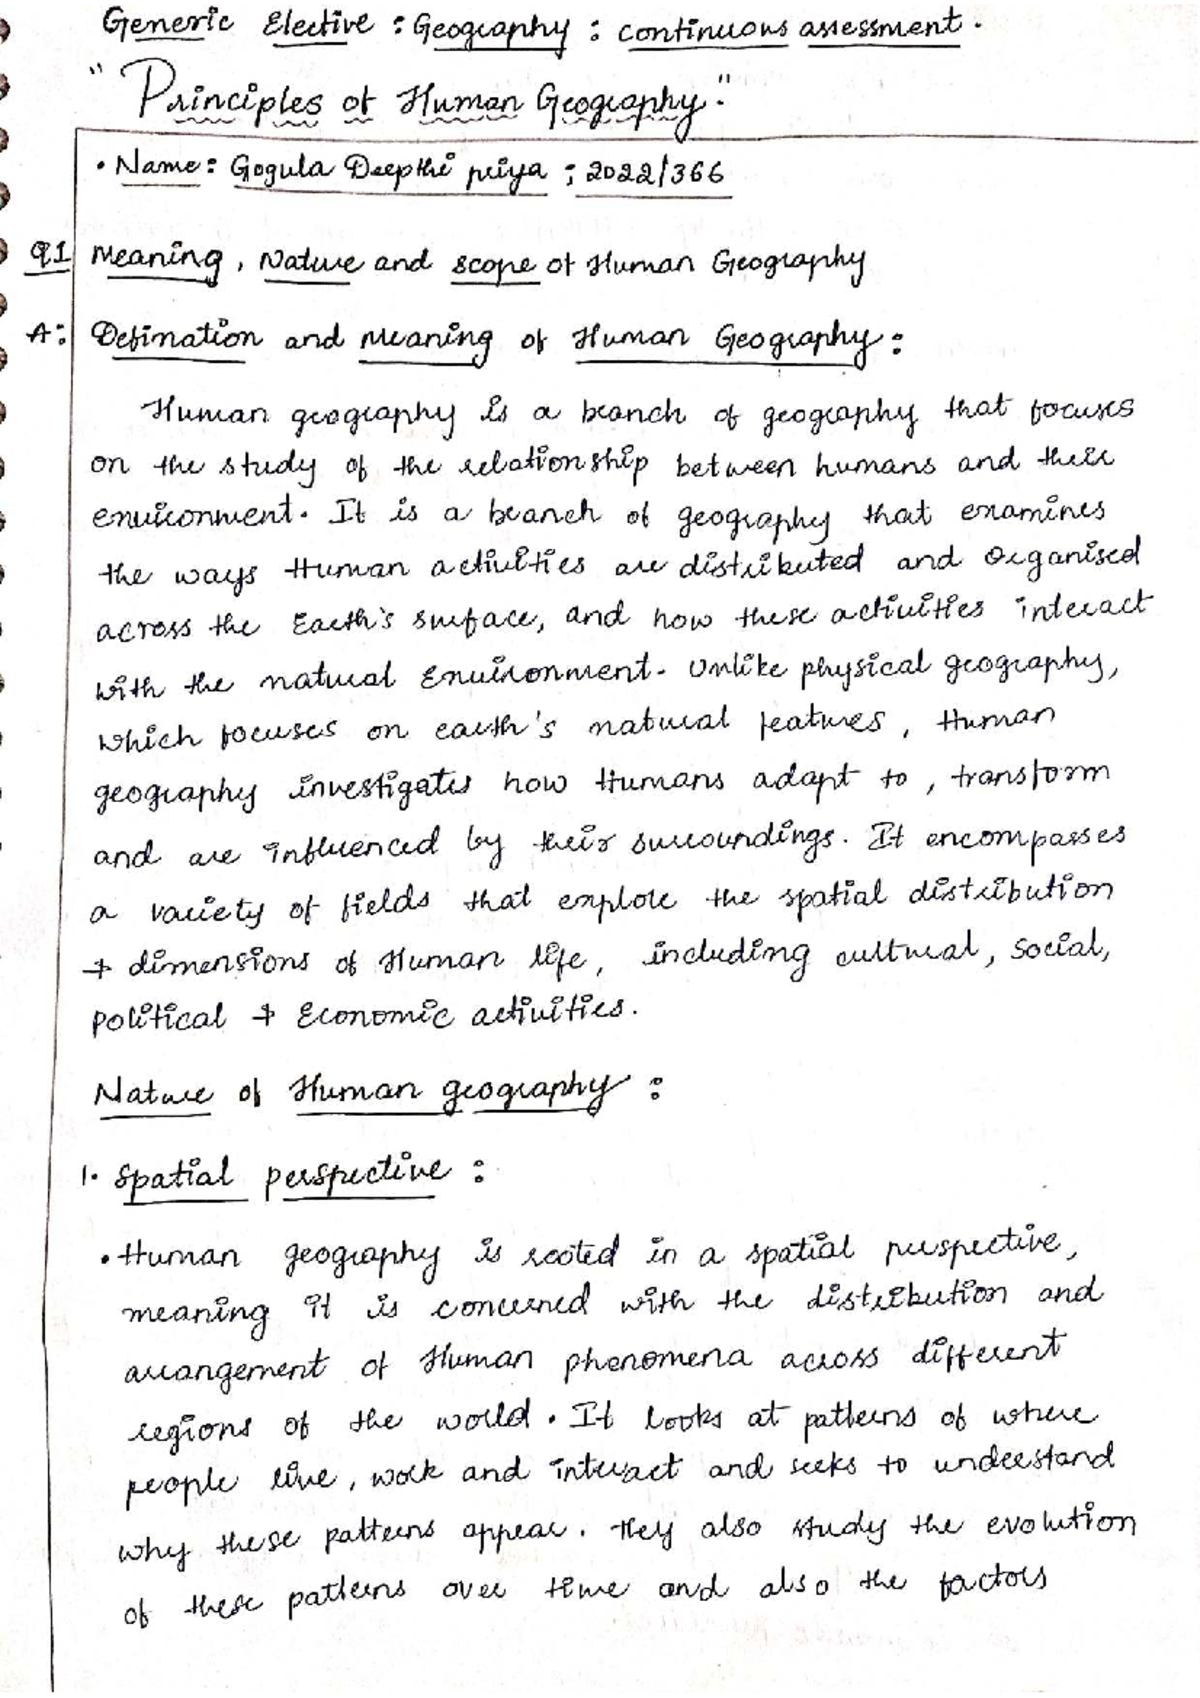 Generic Elective : Geography : continuous assessment.
"Principles of Human Geography."
• Name: Gogula Deepthi priya ; 2022/366
Q1 Meaning, Nature and scope of Human Geography
A: Defination and Meaning of Human Geography:
Human geography is a branch of geography that focuses
on the study of the relationship between humans and their
environment. It is a branch of geography that examines
the ways Human activities are distributed and Organised
across the Earth's surface, and how these activities interact
with the natural Environment. Unlike physical geography,
which focuses on earth's natural features, Human
geography investigates how Humans adapt to, transform
and are influenced by their surroundings. It encompasses
a variety of fields that explore the spatial distribution
+ dimensions of Human life, including cultural, social,
Political + Economic activities.
Nature of Human geography :
1. Spatial perspective :
• Human geography is rooted in a spatial perspective,
meaning it is concerned with the distribution and
arrangement of Human phenomena across different
regions of the world. It looks at patterns of where
people live, work and interact and seeks to understand
why these patterns appear. They also study the evolution
of these patterns over time and also the factors